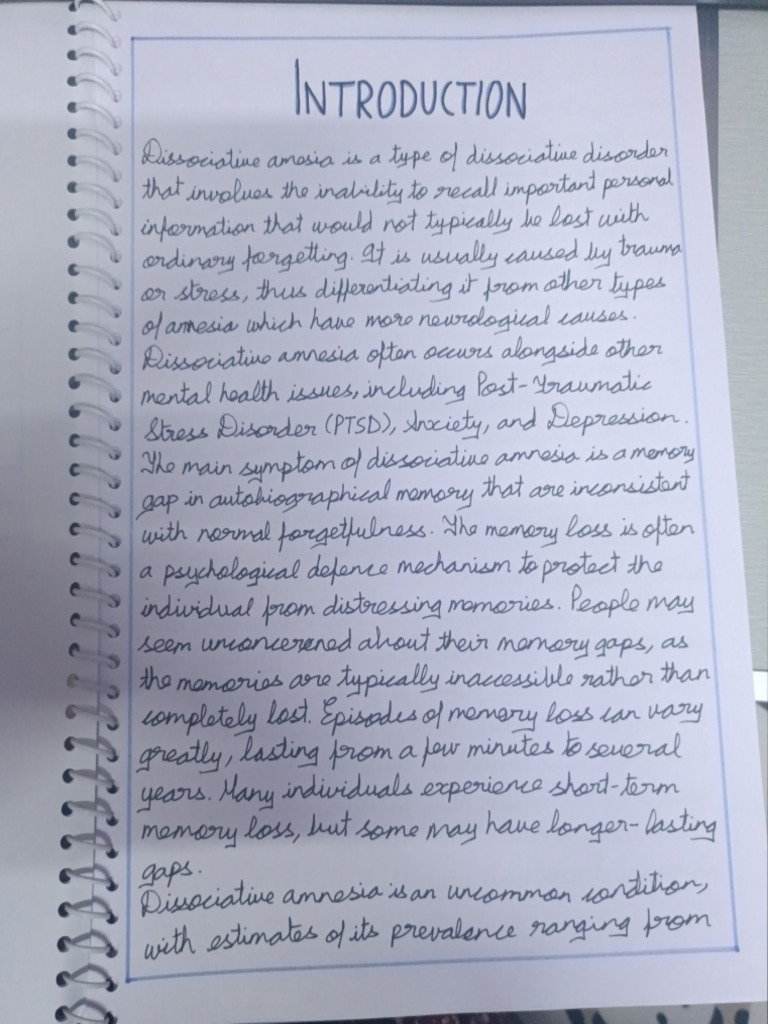 INTRODUCTION
Dissociative amosia is a type of dissociative disorder
that involves the inability to recall important personal
information that would not typically be lost with
ordinary forgetting. It is usually caused by trauma
or stress, thus differentiating it from other types
of amnesia which have more neurological causes.
Dissociative amnesia often occurs alongside other
mental health issues, including Post-Traumatic
Stress Disorder (PTSD), Anxiety, and Depression.
The main symptom of dissociative amnesia is a memory
gap in autobiographical memory that are inconsistent
with normal forgetfulness. The memory loss is often
a psychological defence mechanism to protect the
individual from distressing memories. People may
seem unconcerened about their memory gaps, as
the memories are typically inaccessible rather than
completely lost. Episodes of memory loss can vary
greatly, lasting from a few minutes to several
years. Many individuals experience short-term
memory loss, but some may have longer-lasting
gaps.
Dissociative amnesia is an uncommon condition,
with estimates of its prevalence ranging from